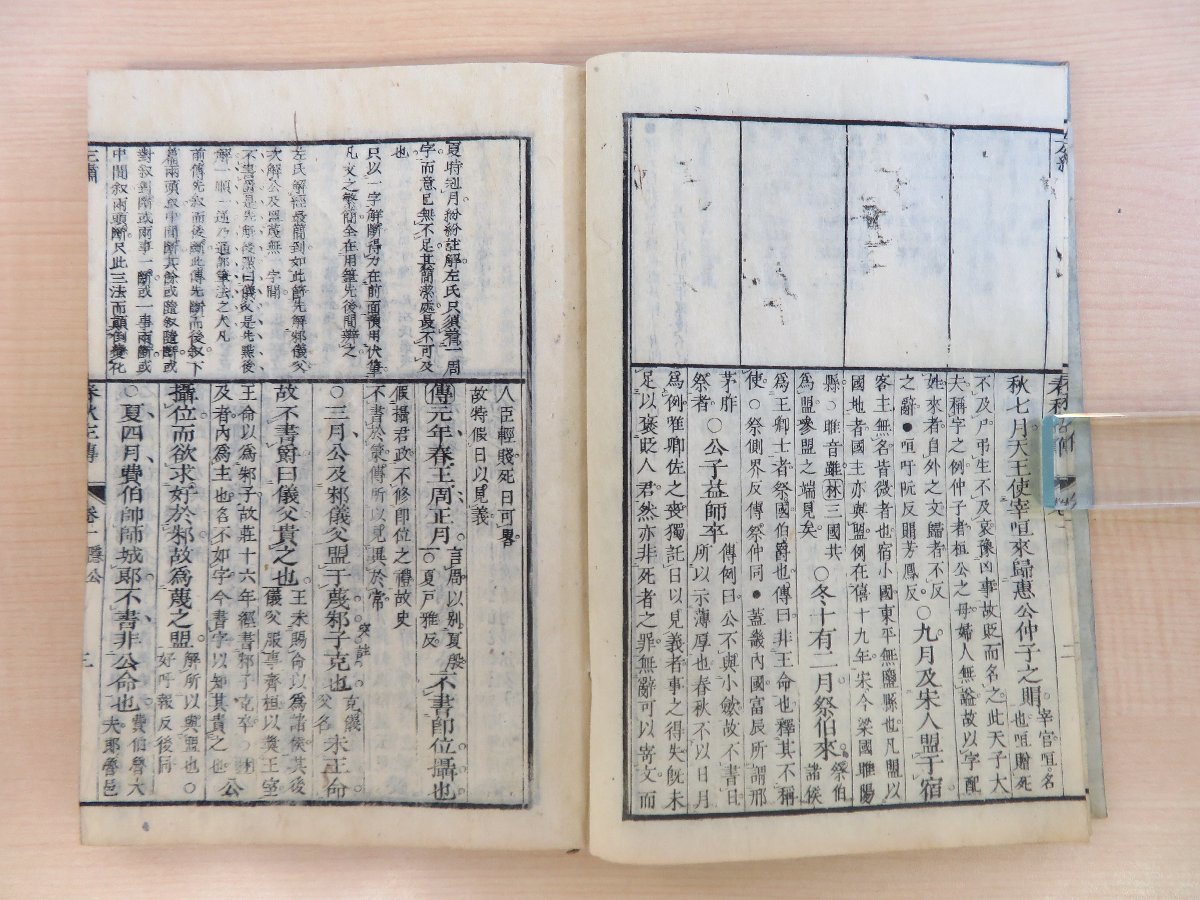 秋七月天王使宰咺來歸惠公仲子之賵宰官咺名
也咺贈死
不及尸弔生不及哀豫凶事故貶而名之此天子大
夫稱字之例仲子者桓公之母婦人無謚故以字配
姓來者自外之文歸者不反
之辭●咺吁阮反賵芳鳳反○九月及宋人盟于宿
客主無名皆微者也宿小國東平無鹽縣也凡盟以
國地者國主亦與盟例在僖十九年宋今梁國睢陽
縣○睢音雖林三國共
為盟參盟之端見矣○冬十有二月祭伯來祭伯
諸侯
為王卿士者祭國伯爵也傳曰非王命也釋其不稱
使○祭側界反傳祭仲同●蓋畿內國富辰所謂邢
茅胙
祭者○公子益師卒傳例曰公不與小斂故不書日
所以示薄厚也春秋不以日月
為例唯卿佐之喪獨託日以見義者事之得失旣未
足以褒貶人君然亦非死者之罪無辭可以寄文而
人臣輕賤死日可畧
故特假日以見義
傳元年春王周正月言周以别夏殷
○夏戸雅反不書卽位攝也
假攝君政不修卽位之禮故史
不書於策傳所以見異於常
○三月公及邾儀父盟于蔑邾子克也克儀
父名未王命
故不書爵曰儀父貴之也王未賜命以為諸侯其後
儀父服事齊桓以奬王室
王命以為邾子故莊十六年經書邾子克卒○林
及者內為主也名不如字今書字以知其貴之也公
攝位而欲求好於邾故為蔑之盟解所以與盟也○
好呼報反後同
○夏四月費伯帥師城郎不書非公命也費伯魯大
夫郎魯邑
夏時冠月紛紛註解左氏只須著一周
字而意已無不足其簡潔處最不可及
也
只以一字解斷得力在前面慣用伏筆
凡文之繁簡全在用筆先後間辨之
左氏解經最簡到如此節先解邾儀父
次解公及盟蔑無一字閒
解一順一逆乃通部筆法之大凡
前傳先叙而後斷此傳先斷而後叙下
對叙對斷或兩事一斷或一事兩斷或
中間叙兩頭斷只此三法而顚倒變化
春秋左傳 卷一隱公 三